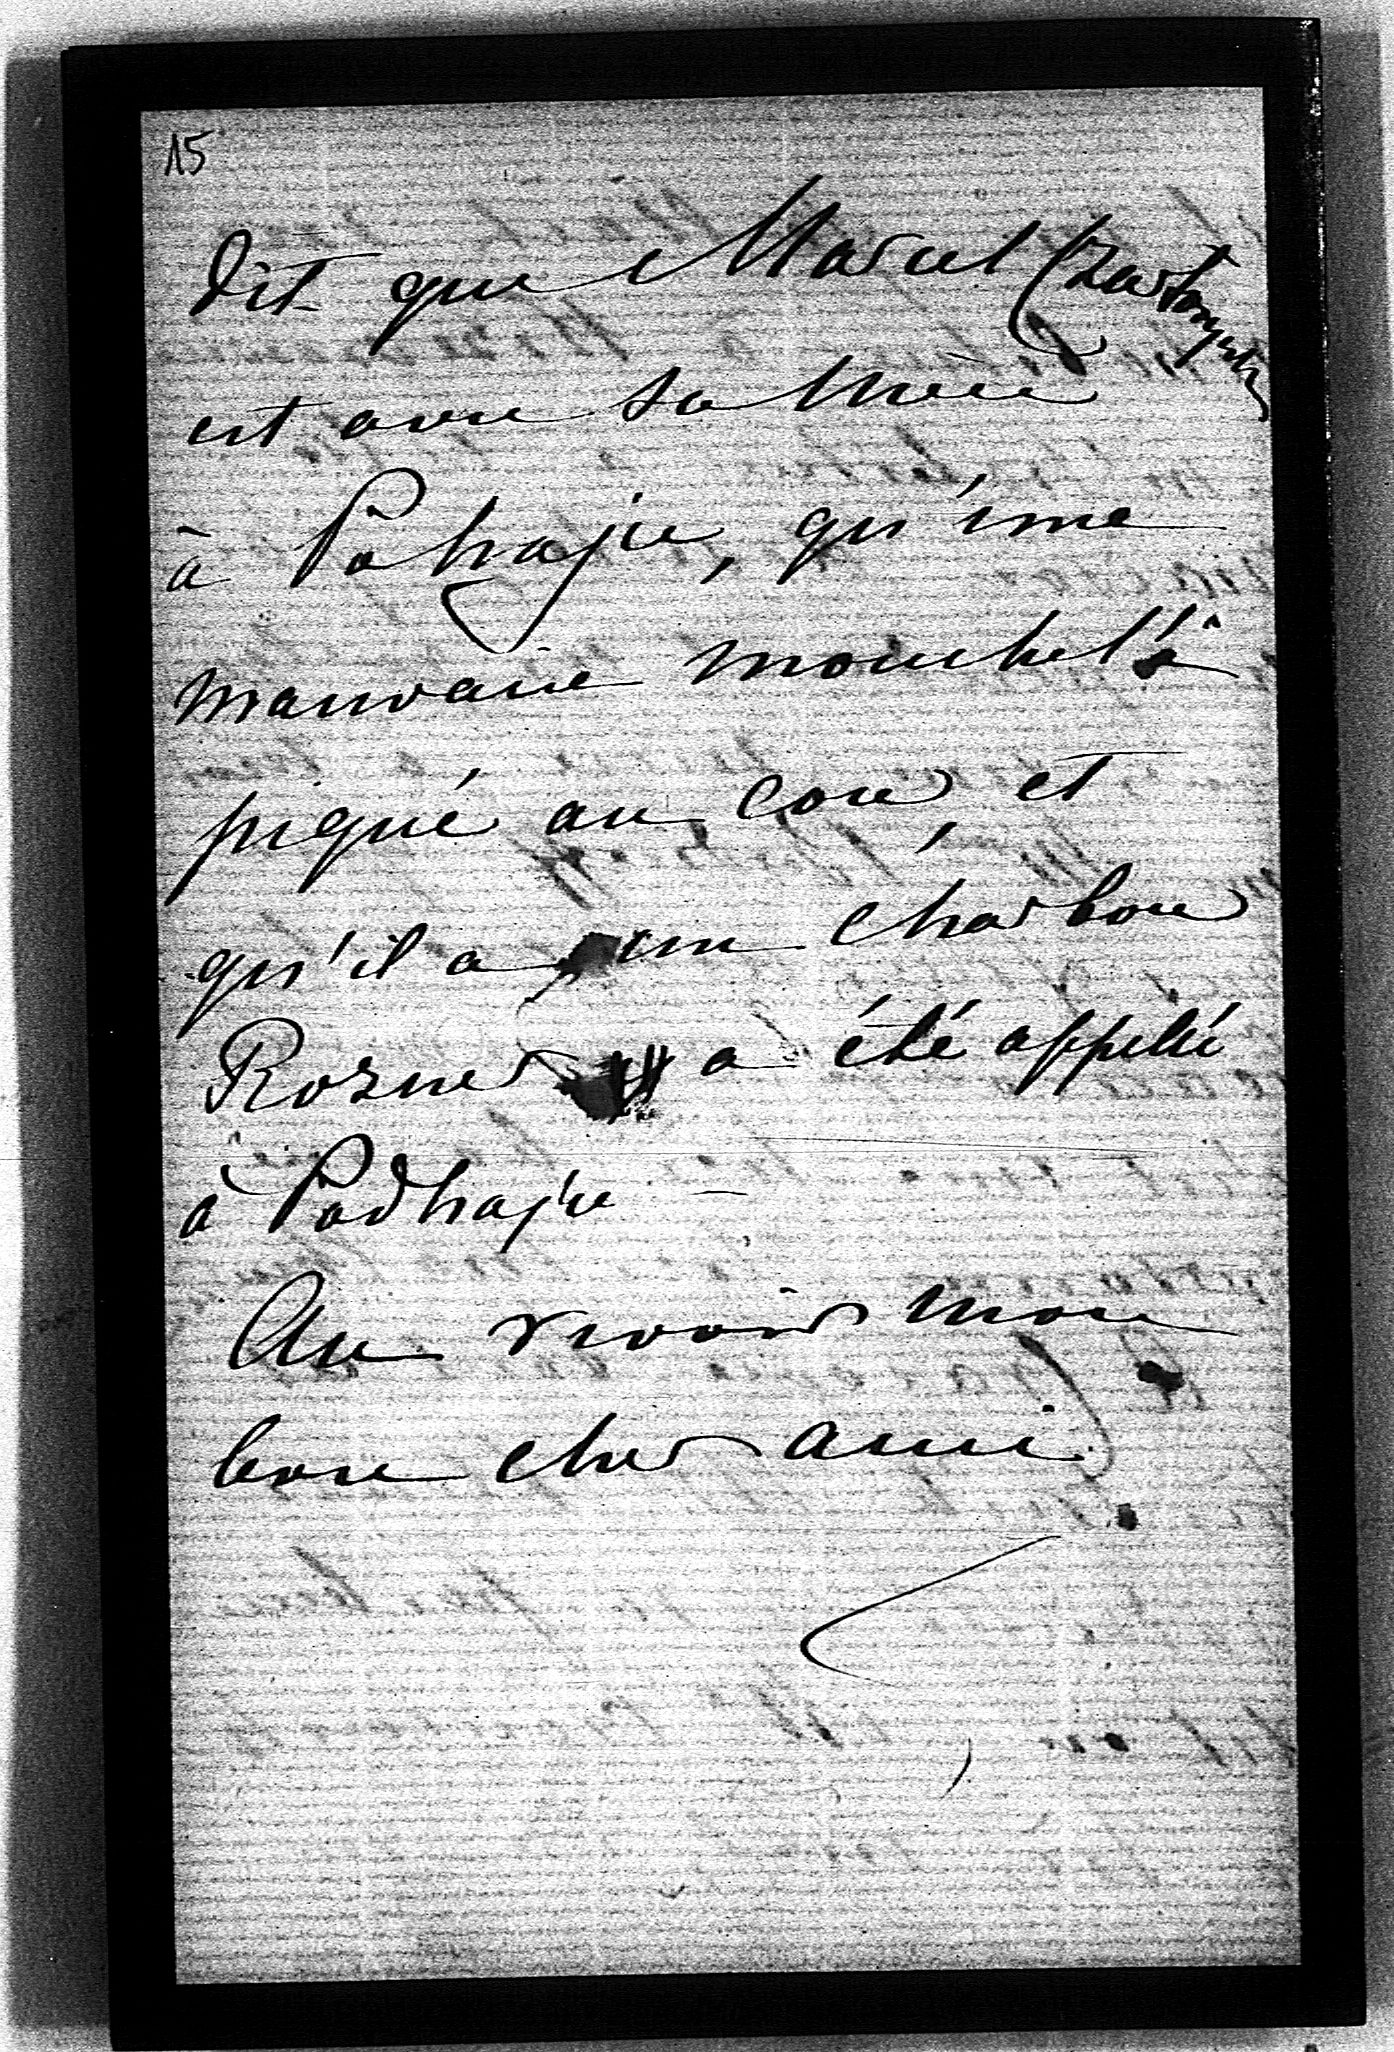 15
dit que Marcel Czartoryski
est avec sa Mère
à Pohajce, qu'une
mauvaise mouche l'a
piqué au cou et
qu'il a un charbon
Rosner a été appellé
à Podhajce —
Au revoir mon
bon cher ami